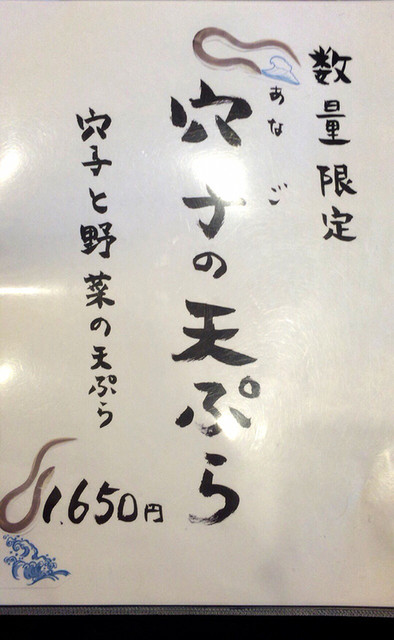 数量限定
あなご
穴子の天ぷら
穴子と野菜の天ぷら
1.650円